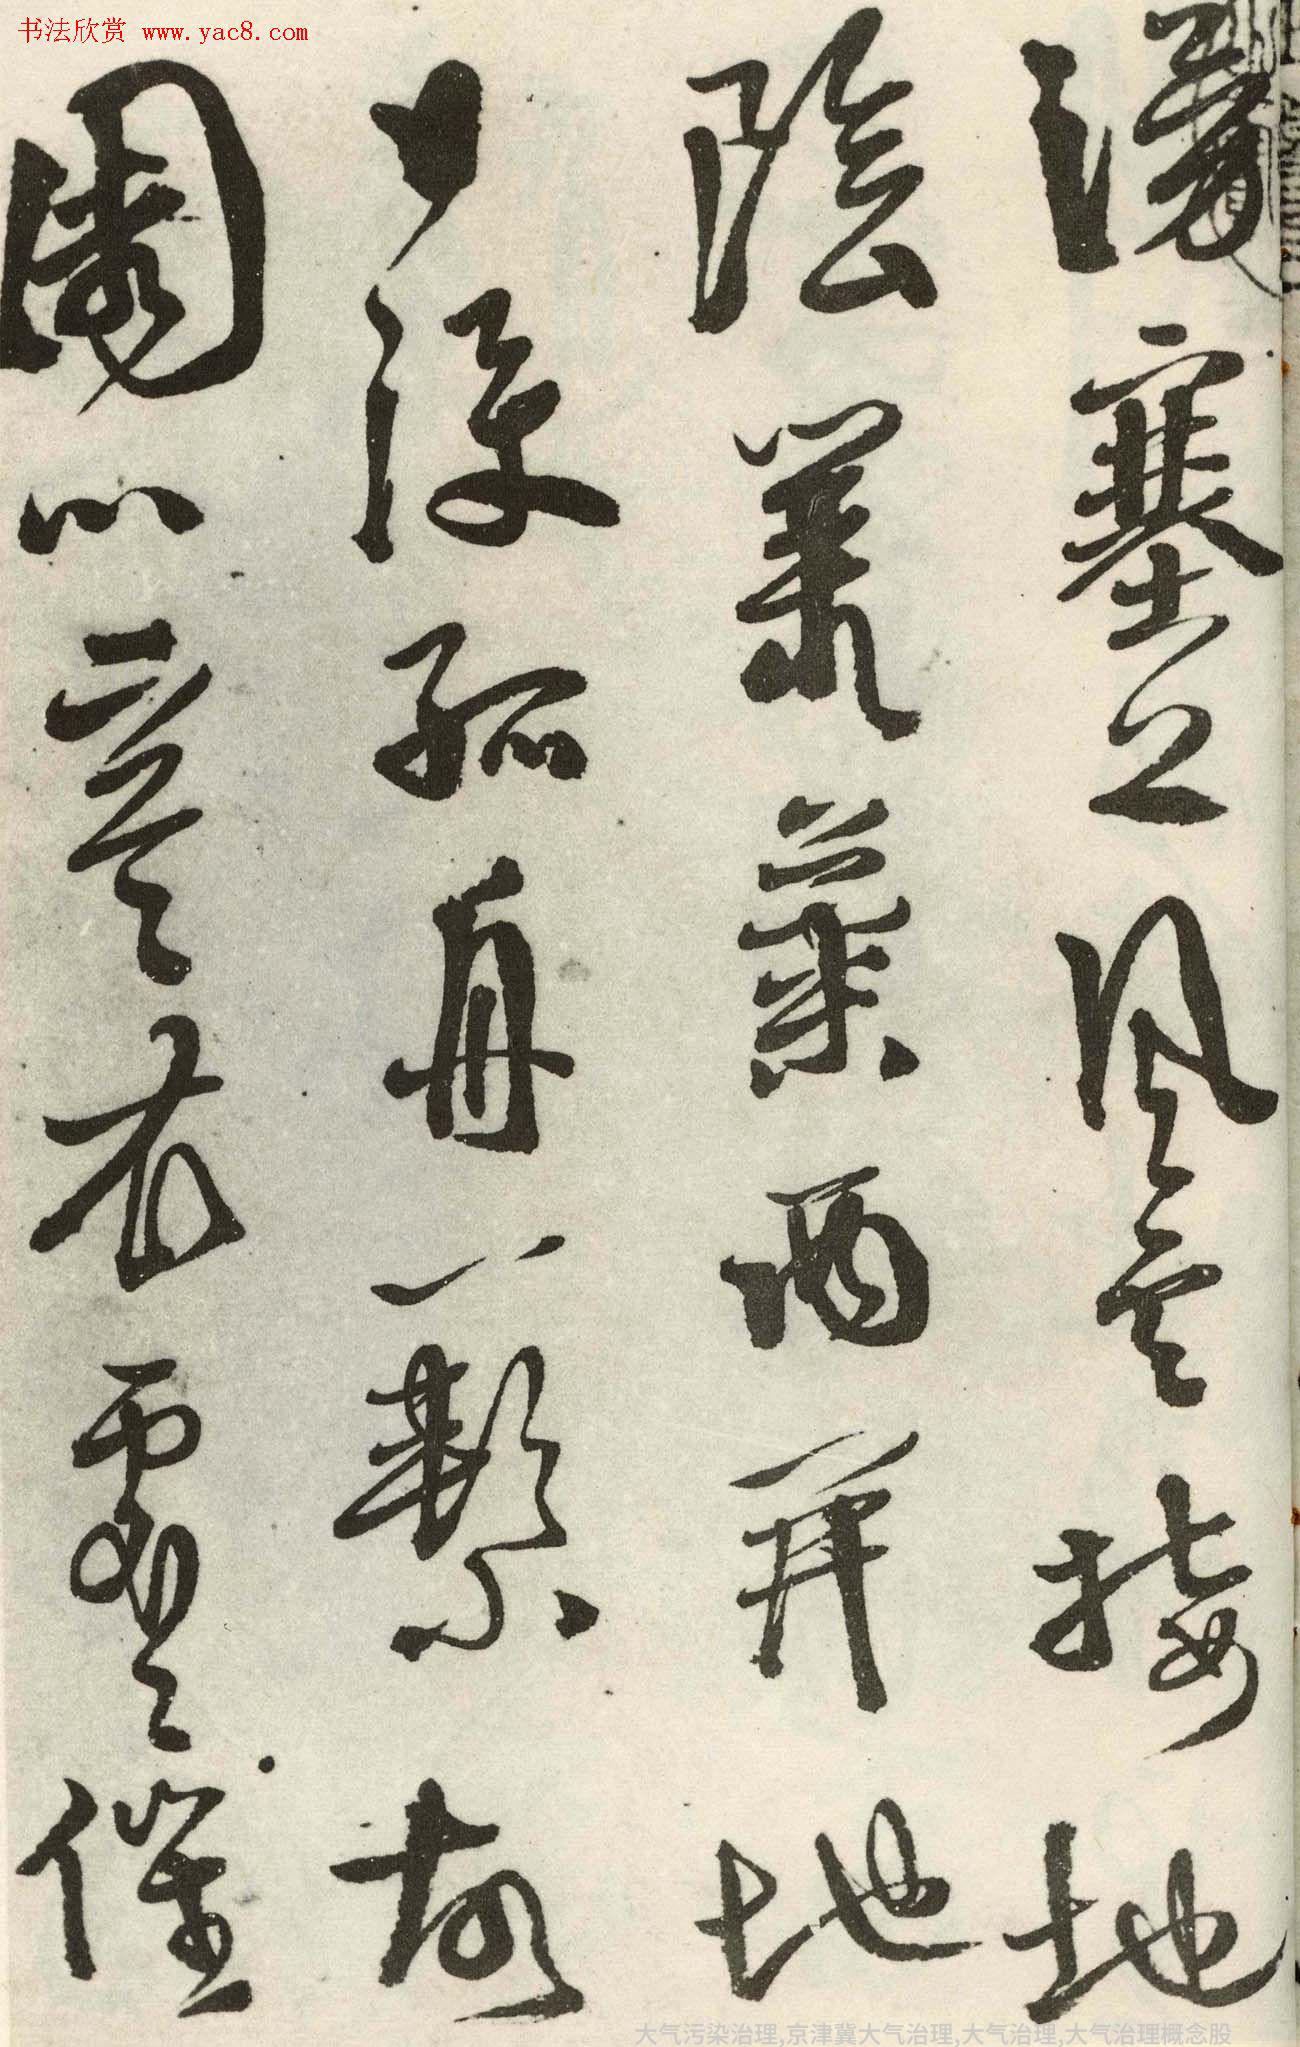 书法欣赏 www.yac8.com
湧塞上風雲接地
陰叢菊兩開地
日淚孤舟一繫故
園心寒衣處處催
大气污染治理,京津冀大气治理,大气治理,大气治理概念股